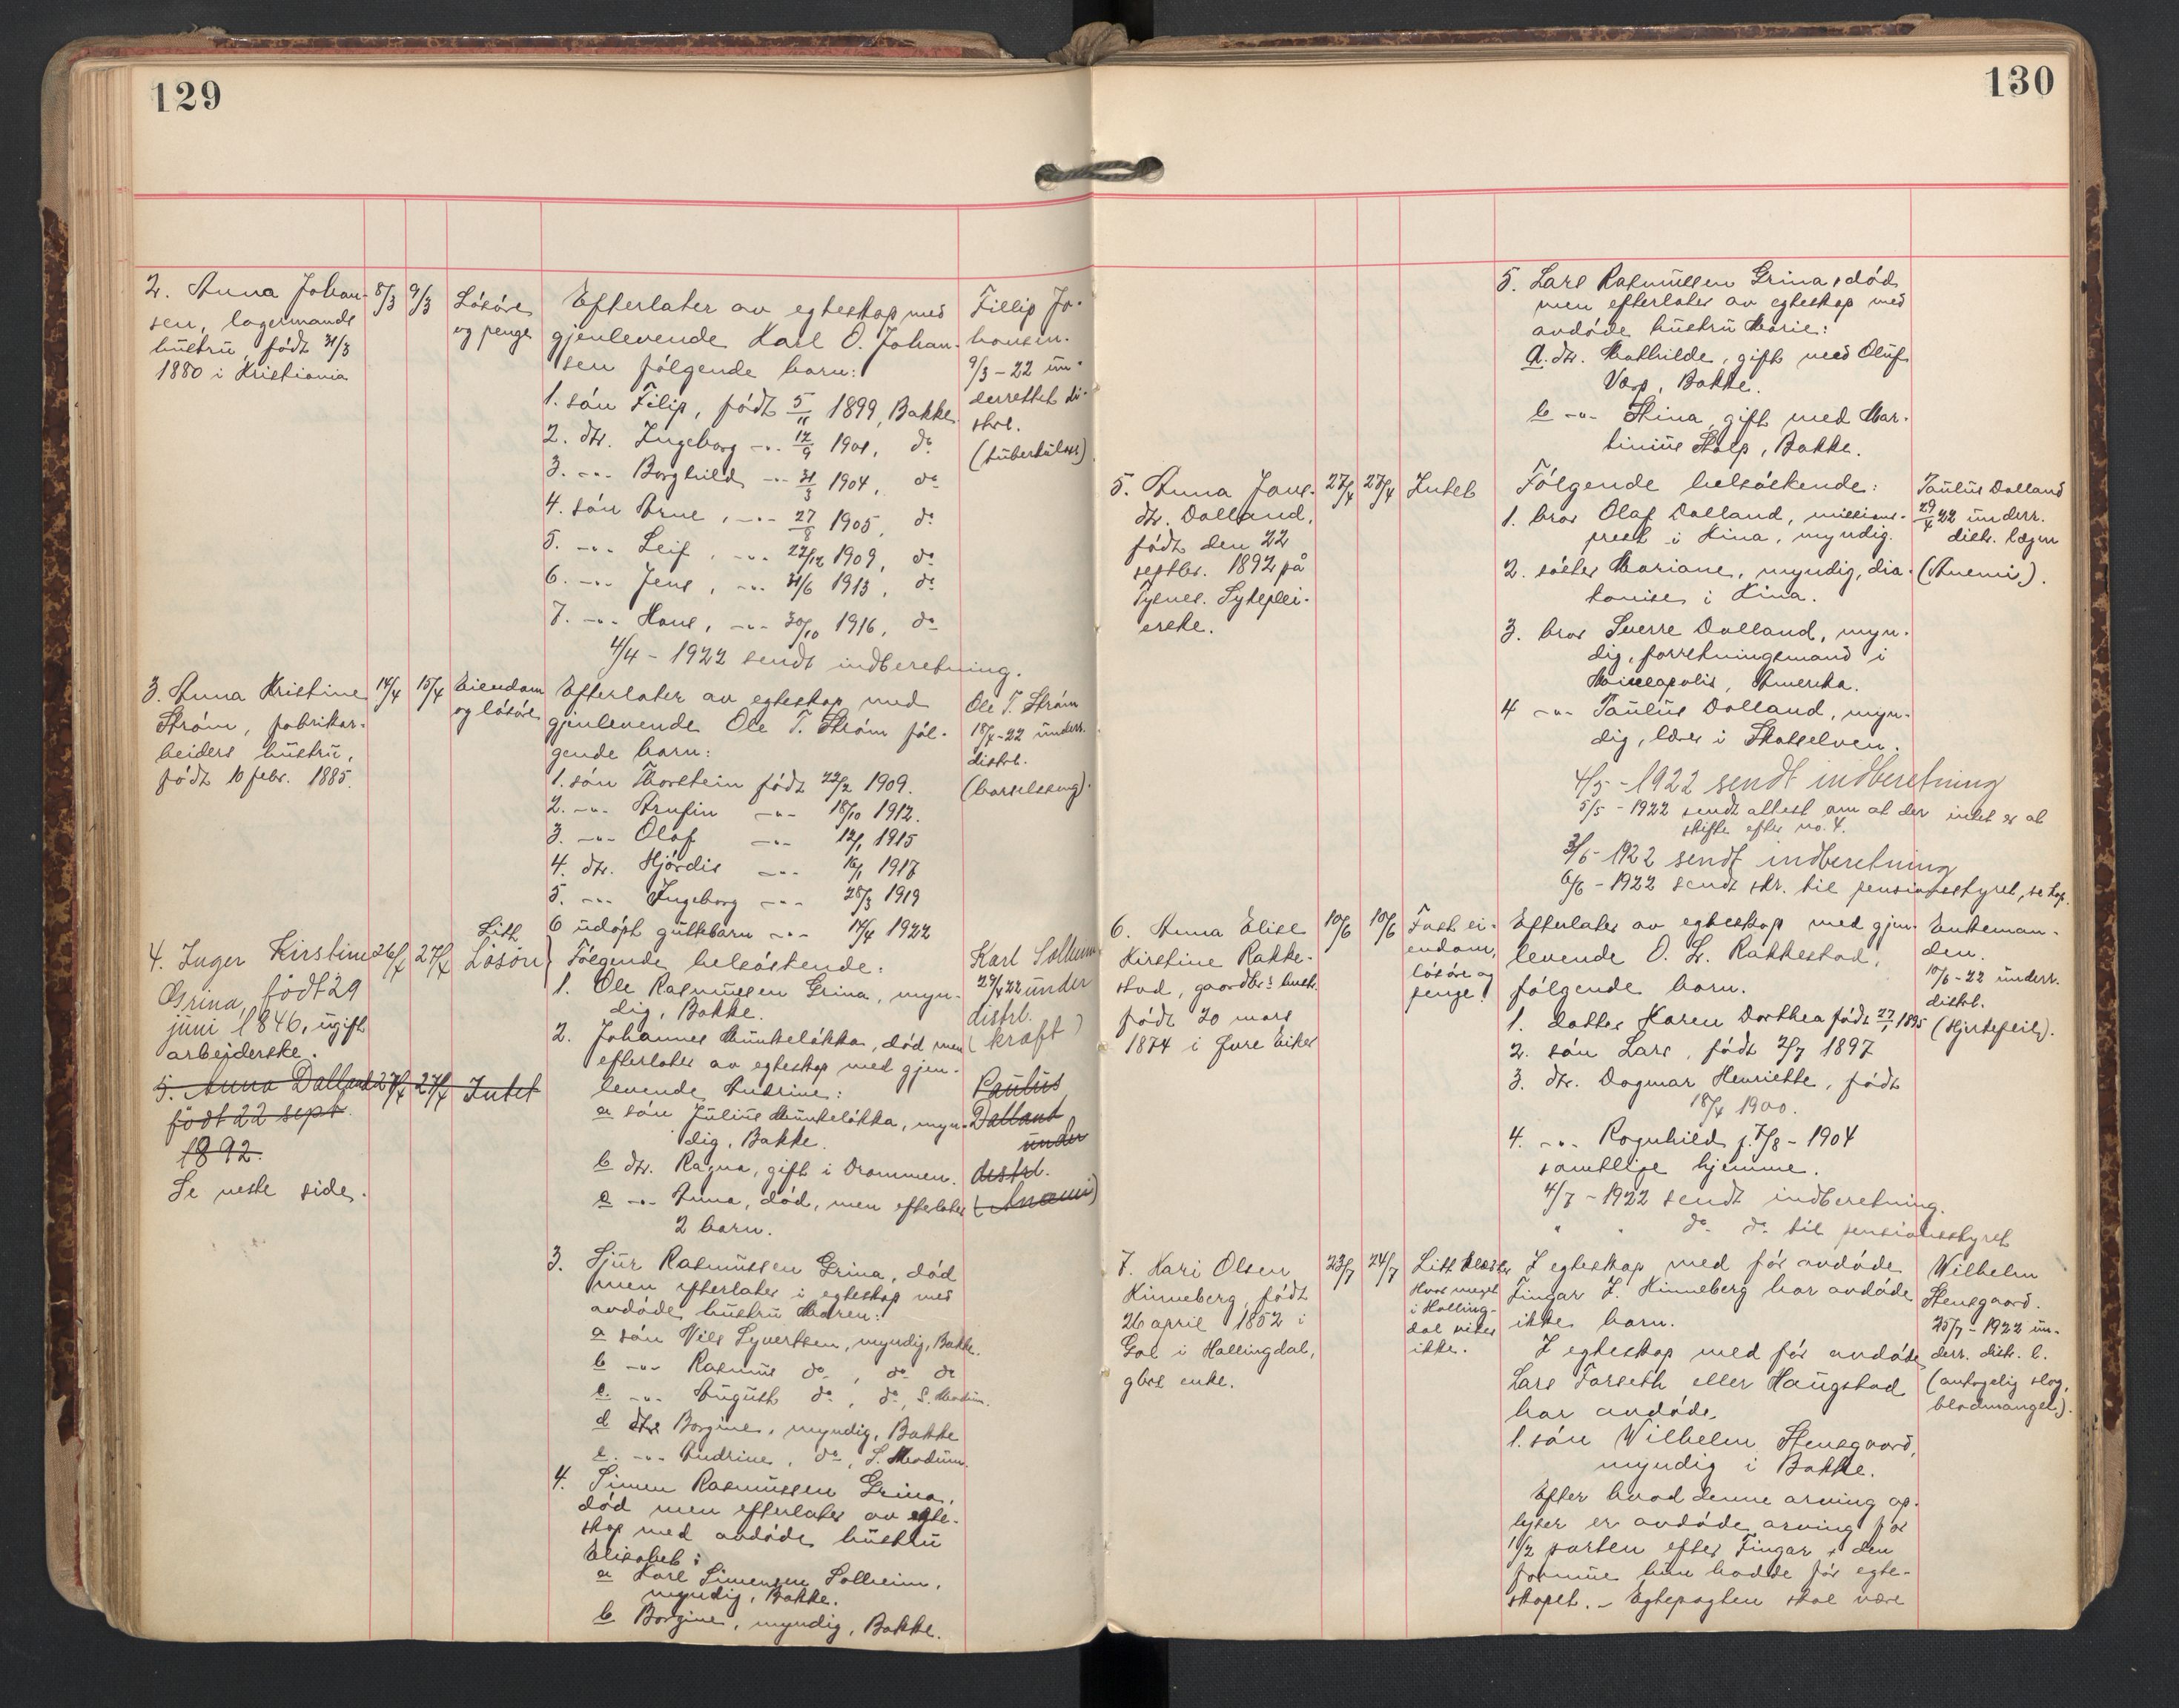 129
2. Anna Johan-
sen, lagermands
hustru, født 31/3
1880 i Kristiania
8/3 9/3
Løsøre
og penge
Efterlater av egteskap med
gjenlevende Karl O. Johan-
sen følgende barn:
1. søn Filip, født 5/11 1899, Bakke
2. dtr. Ingeborg -"- 12/9 1901, do
3. -"- Borghild -"- 31/3 1904, do
4. søn Arne, -"- 27/8 1905, do
5. -"- Leif, -"- 22/12 1909, do
6. -"- Jens, -"- 21/6 1913, do
7. -"- Hans, -"- 30/10 1916, do
4/4 - 1922 sendt indberetning.
Fillip Jo-
hansen.
9/3 - 22 un-
derrettet di-
strl.
(tuberkulose)
3. Anna Kristine
Strøm, fabrikar-
beiders hustru,
født 10 febr. 1885.
14/4 15/4
Eiendom
og løsøre
Efterlater av egteskap med
gjenlevende Ole T. Strøm føl-
gende barn:
1. søn Thorstein født 22/2 1909.
2. -"- Arnfin -"- 18/10 1912.
3. -"- Olaf -"- 12/1 1915
4. dtr. Hjørdis -"- 16/1 1917
5. -"- Ingeborg -"- 28/3 1919
6 udøpt guttebarn -"- 14/4 1922
Ole T. Strøm
18/4 - 22 underr.
distrl.
(barselseng).
4. Inger Kirstine
Grina, født 29
juni 1846, ugift
arbejderske.
26/4 27/4
Litt
Løsøre
Følgende helsøskende:
1. Ole Rasmussen Grina, myn-
dig, Bakke.
2. Johannes Munkeløkka, død men
efterlater av egteskap med gjen-
levende Andrine:
a søn Julius Munkeløkka, myn-
dig, Bakke.
b dtr. Ragna, gift i Drammen.
c -"- Anna, død, men efterlater
2 barn.
3. Sjur Rasmussen Grina, død
men efterlater i egteskap med
avdøde hustru Maren:
a søn Nils Syvertsen, myndig, Bakke.
b -"- Rasmus do, do do
c. -"- August do, do, S. Modum.
d dtr Borgine, myndig, Bakke
e. -"- Andrine, do, S. Modum.
4. Simen Rasmussen Grina,
død men efterlater av egte-
skap med avdøde hustru
Elisabet:
a Karl Simensen Solheim,
myndig, Bakke.
b Borgine, myndig, Bakke.
Karl Solheim
29/4 22 under
distrl.
(kræft)
5. Anna Dalland
født 22 sept.
1892.
27/4 27/4 Intet
Paulus
Dalland
under
distrl.
(Anæmi)
Se neste side.
130
5. Lars Rasmussen Grina, død
men efterlater av egteskap med
avdøde hustru Marie:
a. dtr. Mathilde, gift med Oluf
Varp, Bakke.
b -"- Stina, gift med Mar-
tinius Stolp, Bakke.
5. Anna Jons-
dtr. Dalland,
født den 22
septbr. 1892 på
Tysnes. Sykeplei-
erske.
27/4 27/4 Intet
Følgende helsøskende:
1. bror Olaf Dalland, missions-
prest i Kina, myndig.
2. søster Mariane, myndig, dia-
konisse i Kina.
3. bror Sverre Dalland, myn-
dig, forretningsmand i
Mineapolis, Amerika.
4 -"- Paulus Dalland, myn-
dig, lærer i Skotselven.
4/5 - 1922 sendt indberetning
5/5 - 1922 sendt attest om at der intet er at
skifte efter no. 4.
3/6 - 1922 sendt indberetning
6/6 - 1922 sendt skr. til pensionsstyret, se kop.
Paulus Dalland
29/4 22 underr.
distr. lægen
(Anemi).
6. Anna Elise
Kirstine Rakke-
stad, gaardbr.s hust.
født 20 mars
1874 i Øvre Eiker
10/6 10/6
Fast ei-
endom,
løsøre og
penge.
Efterlater av egteskap med gjen-
levende O. L. Rakkestad,
følgende barn.
1. datter Karen Dorthea født 27/1 1895
2. søn Lars, født 2/7 1897
3. dtr. Dagmar Henriette, født
18/4 1900.
4. -"- Ragnhild f. 7/8 - 1904
samtlige hjemme.
4/7 - 1922 sendt indberetning.
" " do do til pensionsstyret
Enkeman-
den.
10/6 - 22 underr.
distrl.
(Hjertefeil).
7. Kari Olsen
Kinneberg, født
26 april 1852 i
Gol i Hallingdal,
gbrs enke.
23/7 24/7
Litt klæder
Hvor meget
i Halling-
dal vites
ikke.
I egteskap med før avdøde
Fingar J. Kinneberg har avdøde
ikke barn.
I egteskap med før avdøde
Lars Forseth eller Haugstad
har avdøde,
1. søn Wilhelm Stensgaard,
myndig i Bakke.
Efter hvad denne arving op-
lyser er avdøde arving for
1/2 parten efter Fingar i den
formue hun hadde før egte-
skapet. - Egtepagten skal være
Wilhelm
Stensgaard.
25/7 - 1922 un-
derr. distr. l.
(antagelig slag,
blodmangel).